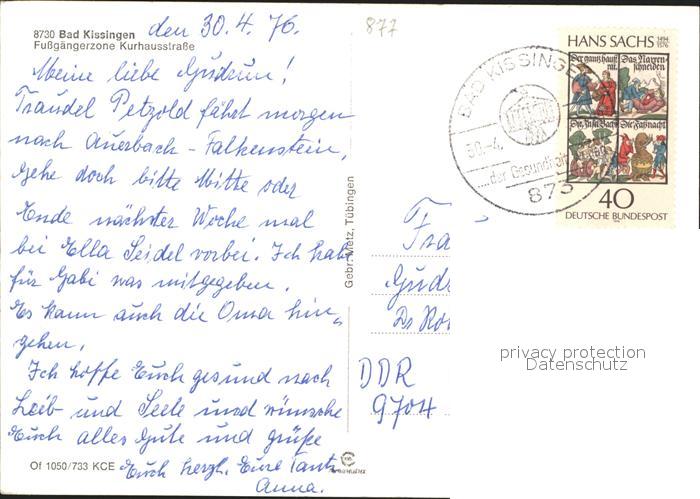 8730 Bad Kissingen den 30.4.76.
Fußgängerzone Kurhausstraße
877
Meine liebe Gudrun!
Traudel Petzold fährt morgen
nach Auerbach - Falkenstein,
gehe doch bitte Mitte oder
Ende nächster Woche mal
bei Ella Seidel vorbei. Ich habe
für Gabi was mitgegeben.
Es kann auch die Oma hin-
gehen.
Ich hoffe Euch gesund nach
Leib- und Seele und wünsche
Euch alles Gute und grüße
Euch herzl. Eure Tante
Anna.
Of 1050/733 KCE
Gebr. Metz, Tübingen
BAD KISSINGEN
30.-4.
...der Gesundheit
873
HANS SACHS 1494 1576
Der gantz hauß rat. Das Narren schneiden
Die Faßnacht
40
DEUTSCHE BUNDESPOST
Frau
Gudr
Dr Ro
DDR
9704
privacy protection
Datenschutz